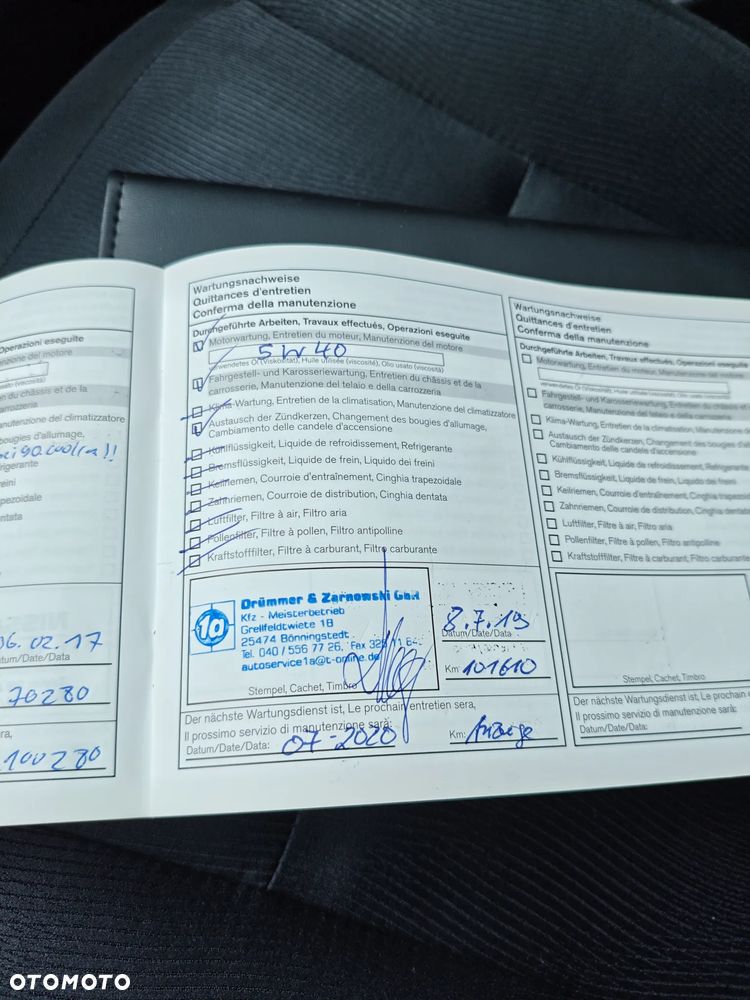 Operazioni eseguite
zione del motore
usato (viscosità)
n du châssis et de la
carrozzeria
nutenzione del climatizzatore
bougies d'allumage,
frigerante
freni
trapezoidale
entata
06.02.17
atum/Date/Data
70280
era,
100280
Wartungsnachweise
Quittances d'entretien
Conferma della manutenzione
Durchgeführte Arbeiten, Travaux effectués, Operazioni eseguite
Motorwartung, Entretien du moteur, Manutenzione del motore
5W40
verwendetes Öl (Viskosität), Huile utilisée (viscosité), Olio usato (viscosità)
Fahrgestell- und Karosseriewartung, Entretien du châssis et de la
carrosserie, Manutenzione del telaio e della carrozzeria
Klima-Wartung, Entretien de la climatisation, Manutenzione del climatizzatore
Austausch der Zündkerzen, Changement des bougies d'allumage,
Cambiamento delle candele d'accensione
Kühlflüssigkeit, Liquide de refroidissement, Refrigerante
Bremsflüssigkeit, Liquide de frein, Liquido dei freini
Keilriemen, Courroie d'entraînement, Cinghia trapezoidale
Zahnriemen, Courroie de distribution, Cinghia dentata
Luftfilter, Filtre à air, Filtro aria
Pollenfilter, Filtre à pollen, Filtro antipolline
Kraftstofffilter, Filtre à carburant, Filtro carburante
10
Drümmer & Zarnowski GmbH
Kfz - Meisterbetrieb
Grellfeldtwiete 1B
25474 Bönningstedt
Tel. 040 / 556 77 26, Fax
autoservice1a@t-online.de
Stempel, Cachet, Timbro
8.7.19
Datum/Date/Data
Km: 101610
Der nächste Wartungsdienst ist, Le prochain entretien sera,
Il prossimo servizio di manutenzione sarà:
Datum/Date/Data: 07-2020
Km: Anzeige
Wartungsnachweise
Quittances d'entretien
Conferma della manutenzione
Durchgeführte Arbeiten, Travaux effectués, Operazioni eseguite
Motorwartung, Entretien du moteur, Manutenzione del motore
verwendetes Öl (Viskosität), Huile utilisée (viscosité), Olio usato
Fahrgestell- und Karosseriewartung, Entretien du châssis et de la
carrosserie, Manutenzione del telaio e della carrozzeria
Klima-Wartung, Entretien de la climatisation, Manutenzione del
Austausch der Zündkerzen, Changement des bougies d'allumage
Cambiamento delle candele d'accensione
Kühlflüssigkeit, Liquide de refroidissement, Refrigerante
Bremsflüssigkeit, Liquide de frein, Liquido dei freini
Keilriemen, Courroie d'entraînement, Cinghia trapezoidale
Zahnriemen, Courroie de distribution, Cinghia dentata
Luftfilter, Filtre à air, Filtro aria
Pollenfilter, Filtre à pollen, Filtro antipolline
Kraftstofffilter, Filtre à carburant, Filtro carburante
Stempel, Cachet, Timbro
Der nächste Wartungsdienst ist, Le prochain
Il prossimo servizio di manutenzione sarà:
Datum/Date/Data:
OTOMOTO